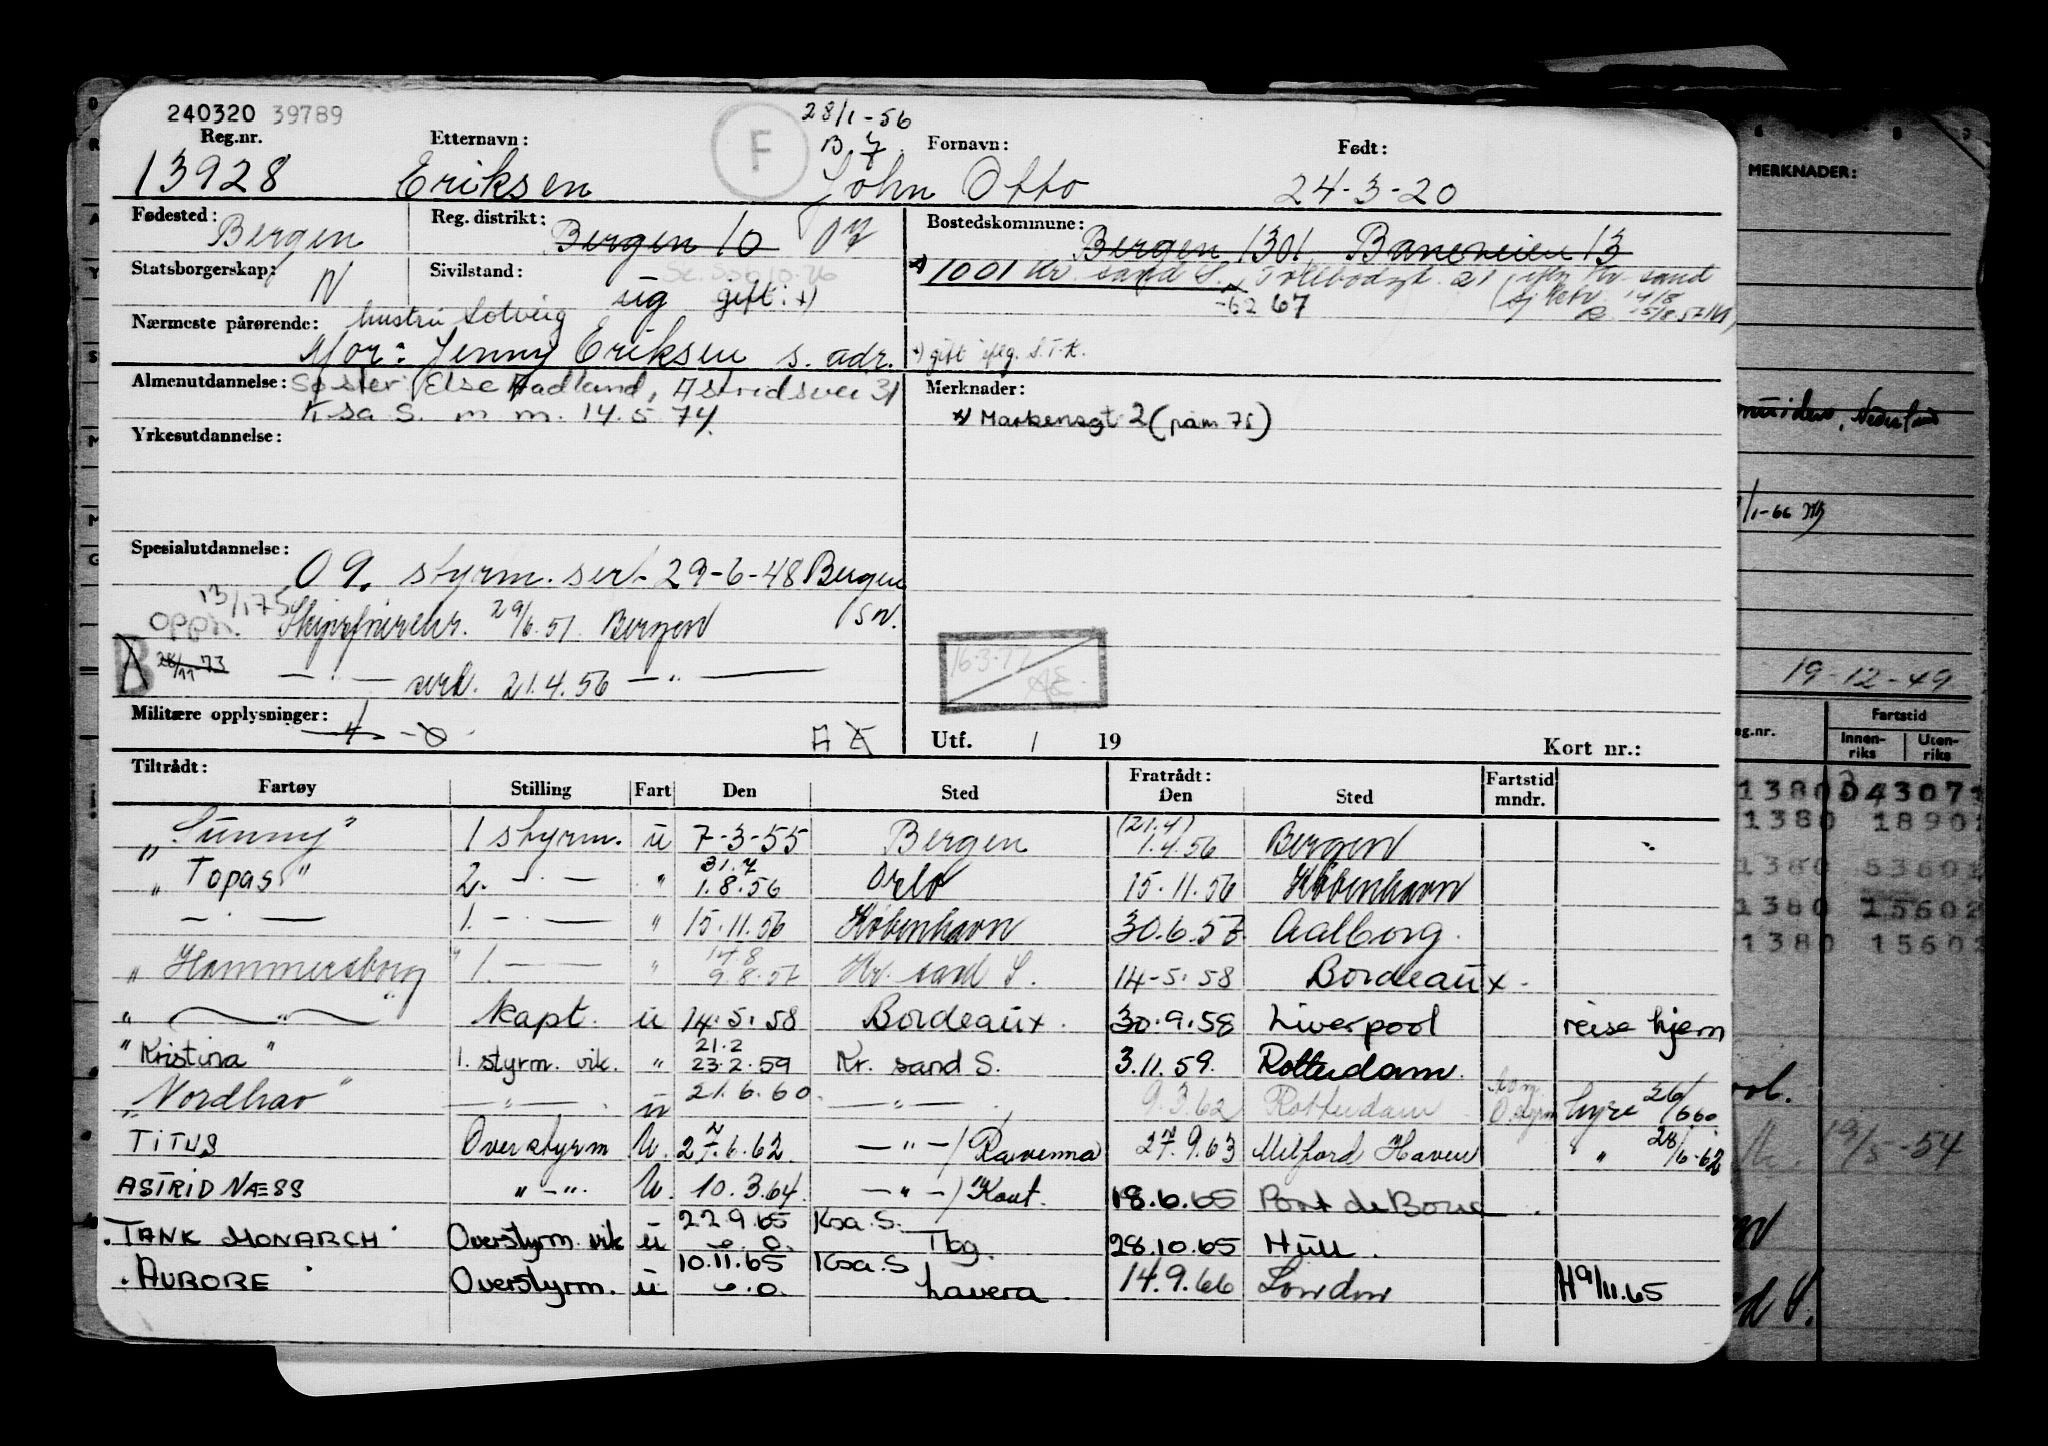 240320 39789
28/1-56
Reg.nr. Etternavn: F B. 7 Fornavn: Født:
13928 Eriksen John Otto 24-3-20
Fødested: Bergen Reg. distrikt: Bergen 10 07 Bostedskommune: Bergen 1301 Baneveien 13
1001 Kr. sand S. Tollbodgt. 21
Statsborgerskap: N Sivilstand: ug gift: x)
-62 67
Nærmeste pårørende: hustru Solveig
Mor: Jenny Eriksen s. adr. x) gift iflg. S.T.K.
Almenutdannelse: Søster: Else Aadland, Astridsvei 31 Merknader:
Ksa S. m m. 14.5.74. x) Markensgt 2 (pam 75)
Yrkesutdannelse:
Spesialutdannelse: 09. styrm. sert. 29-6-48 Bergen
13/1 75 Oppn. Skipsførerekr. 29/6.51 Bergen SN.
B 28/11-73 — " — 21.4.56 — " —
16.3.77 AE
Militære opplysninger: Utf. / 19 Kort nr.:
Tiltrådt: Fratrådt: Fartstid
Fartøy Stilling Fart Den Sted Den Sted mndr.
„Sunny" 1 styrm. u 7-3-55 Bergen (21.4) 1.4.56 Bergen
„Topas" 2. — " — " 31.7 1.8.56 Oslo 15.11.56 København
— " — 1. — " — " 15.11.56 København 30.6.57 Aalborg.
„Hammersborg" 1. — " — " 14.8 9.8.57 Kr. sand S. 14-5.58 Bordeaux.
" — " — " kapt. u 14.5.58 Bordeaux. 30.9.58 Liverpool reise hjem
"Kristina" 1. styrm. vik. " 21.2 23.2.59 Kr. sand S. 3.11.59. Rotterdam.
"Nordhav" — " — u 21.6.60 — " — 9.3.62 Rotterdam hyre 26/6 60
TITUS Overstyrm U. 27.6.62. — " — / Ravenna 27.9.63 Milford Haven " 28/6-62
ASTRID NÆSS " — " U. 10.3.64. — " — / 18.6.65 Port de Bouc
"TANK MONARCH" Overstyrm. vik u 22.9.65 Ksa. S. Tbg. 28.10.65 Hull.
"AURORE" Overstyrm. u 10.11.65 Ksa. S Lavera. 14.9.66 London H 9/11.65
MERKNADER:
Nederland
/1-66
19-12-49
Fartstid
Innenriks Utenriks
1380 1890
1380 5360
1380 15602
1380 15602
19/5-54